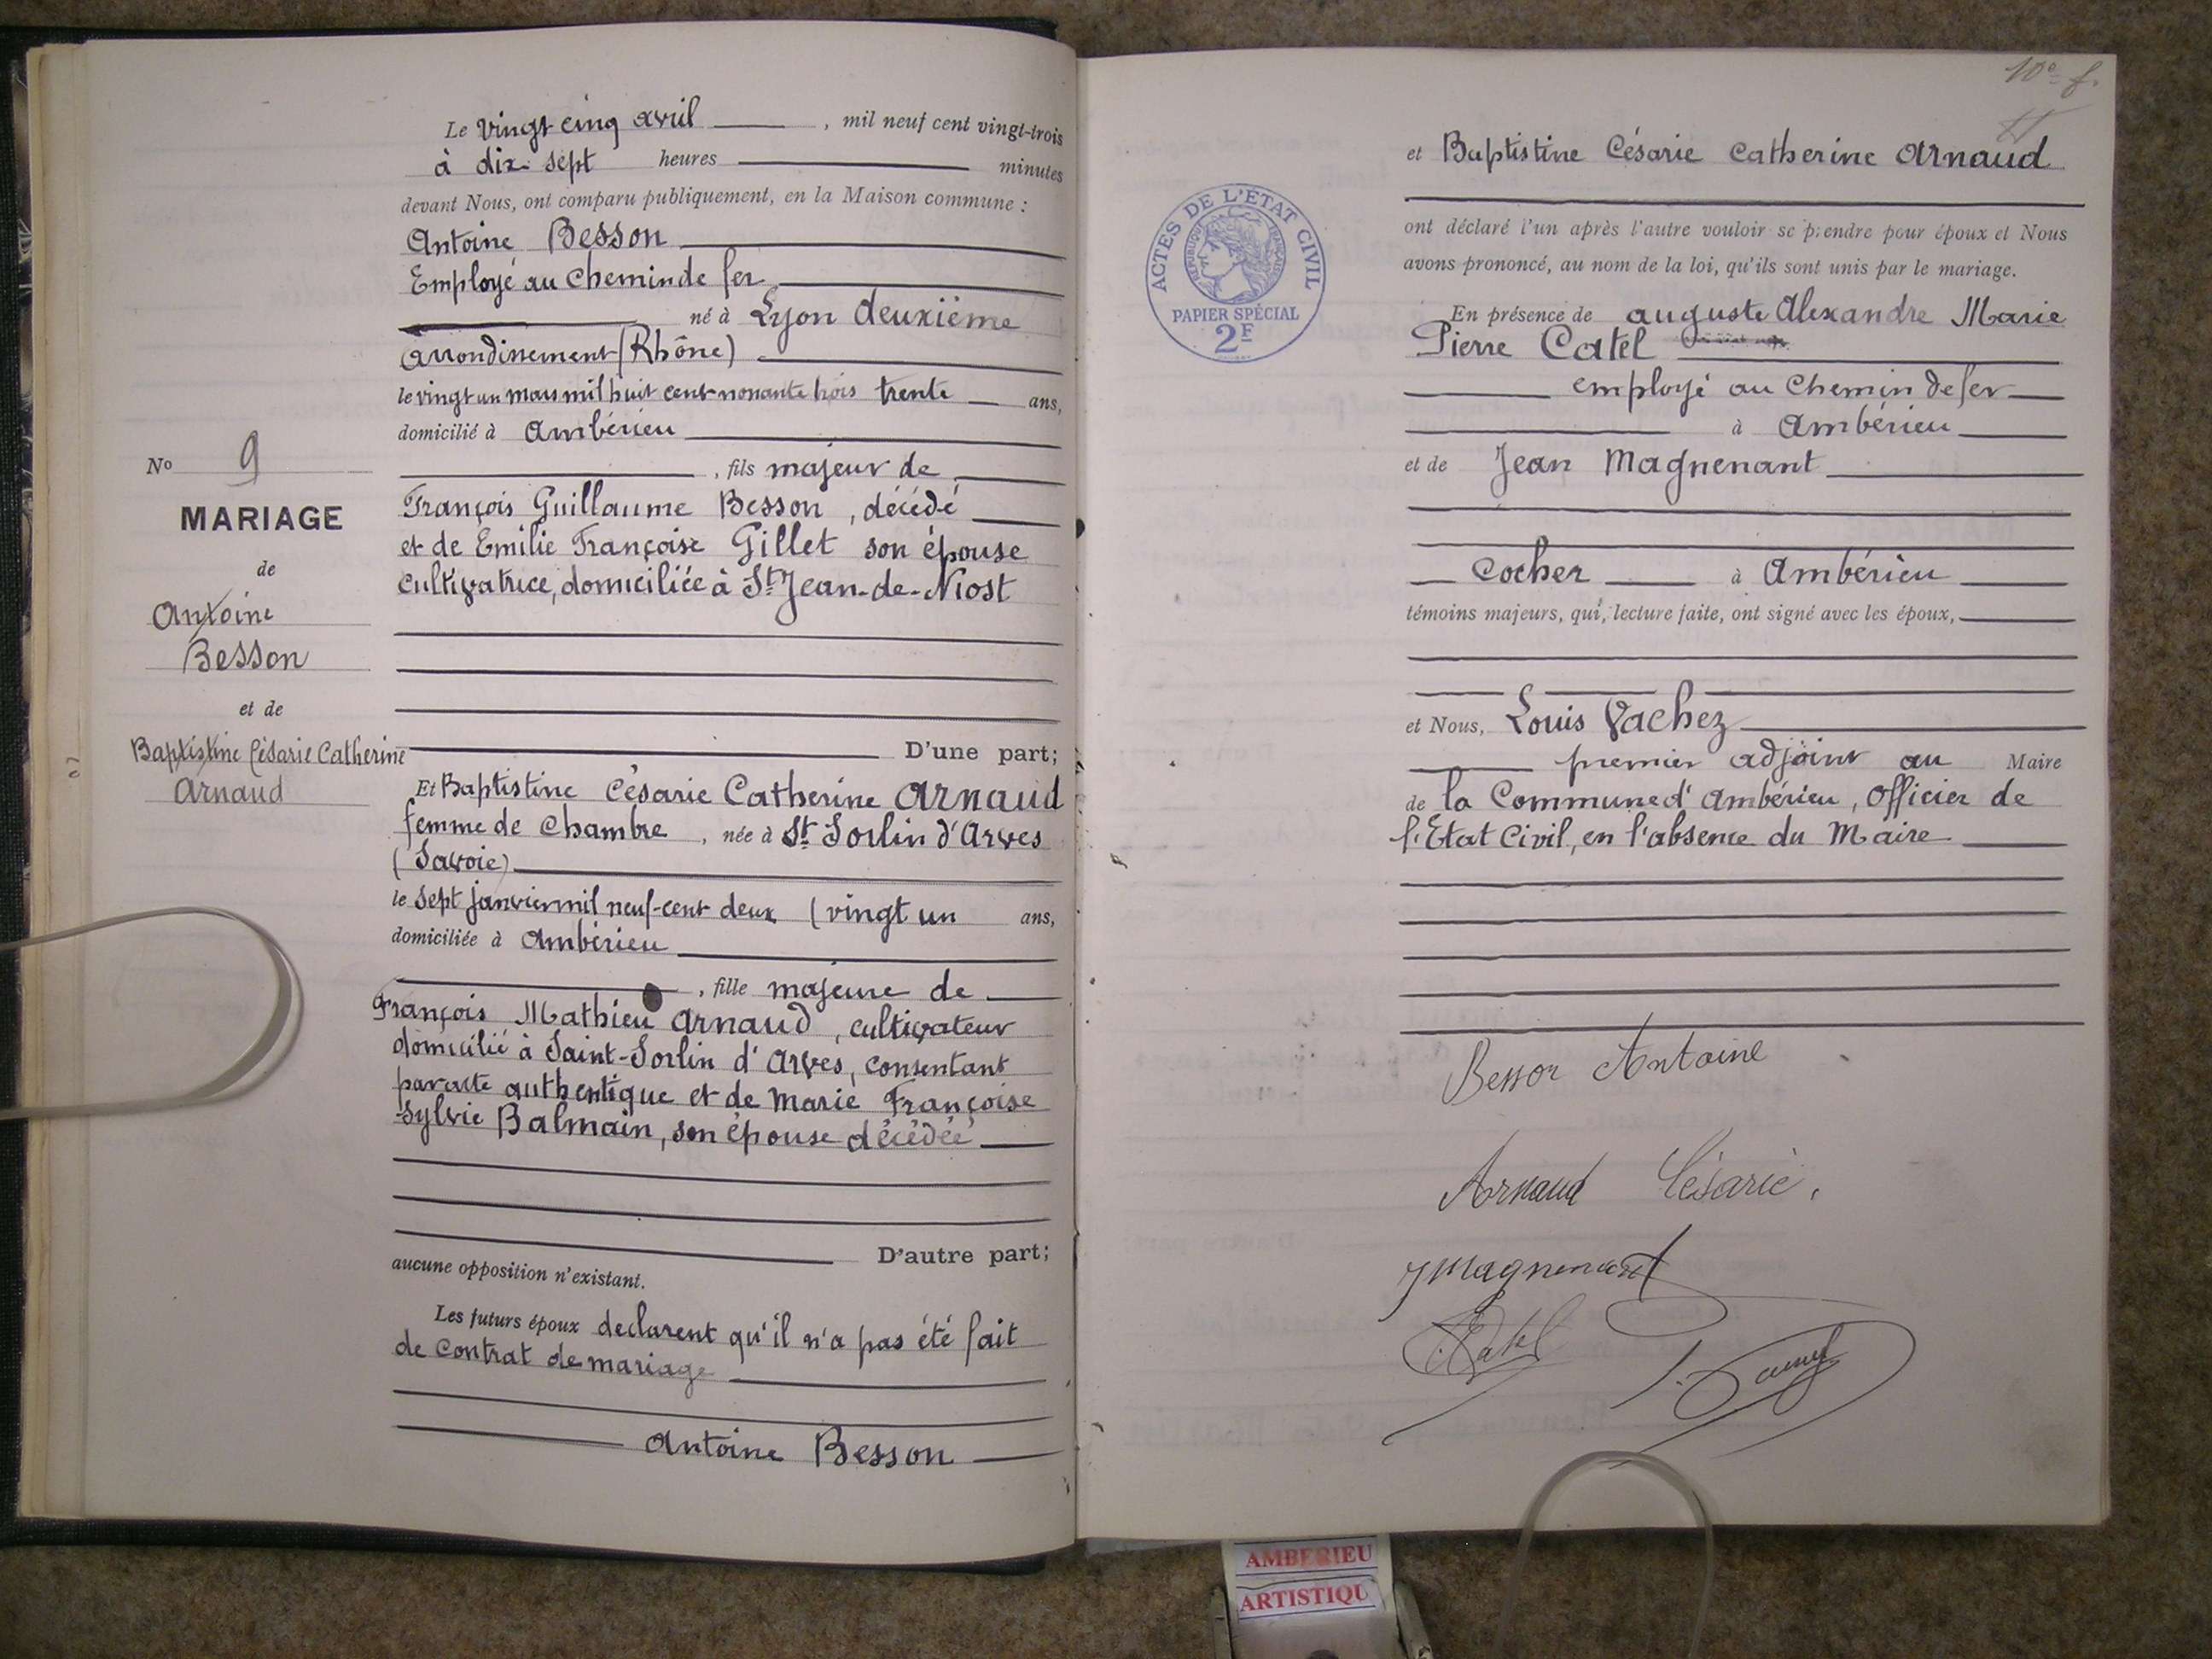 Le vingt cinq avril , mil neuf cent vingt-trois
à dix-sept heures minutes
devant Nous, ont comparu publiquement, en la Maison commune :
Antoine Besson
Employé au Chemin de fer
né à Lyon deuxième
arrondissement (Rhône)
le vingt un mars mil huit cent nonante trois trente ans,
domicilié à Ambérieu
, fils majeur de
François Guillaume Besson , décédé
et de Emilie Françoise Gillet son épouse
cultivatrice, domiciliée à St Jean-de-Niost
No 9
MARIAGE
de
Antoine
Besson
et de
Baptistine Césarie Catherine
Arnaud
D'une part;
Et Baptistine Césarie Catherine Arnaud
femme de Chambre , née à St Sorlin d'Arves
(Savoie)
le sept janvier mil neuf-cent deux (vingt un ans,
domiciliée à Ambérieu
, fille majeure de
François Mathieu Arnaud , cultivateur
domicilié à Saint-Sorlin d'Arves, consentant
par acte authentique et de Marie Françoise
Sylvie Balmain, son épouse décédée
D'autre part;
aucune opposition n'existant.
Les futurs époux declarent qu'il n'a pas été fait
de contrat de mariage
Antoine Besson
10e f.
et Baptistine Césarie Catherine Arnaud
ACTES DE L'ÉTAT CIVIL
RÉPUBLIQUE FRANÇAISE
PAPIER SPÉCIAL
2F
ont déclaré l'un après l'autre vouloir se prendre pour époux et Nous
avons prononcé, au nom de la loi, qu'ils sont unis par le mariage.
En présence de auguste Alexandre Marie
Pierre Catel
employé au Chemin de fer
à Ambérieu
et de Jean Magnenant
Cocher à Ambérieu
témoins majeurs, qui, lecture faite, ont signé avec les époux,
et Nous, Louis Vachez
premier adjoint au Maire
de la Commune d'Ambérieu, Officier de
l'Etat Civil, en l'absence du Maire
Besson Antoine
Arnaud Césarie.
J Magnenant
Catel
AMBERIEU
ARTISTIQU